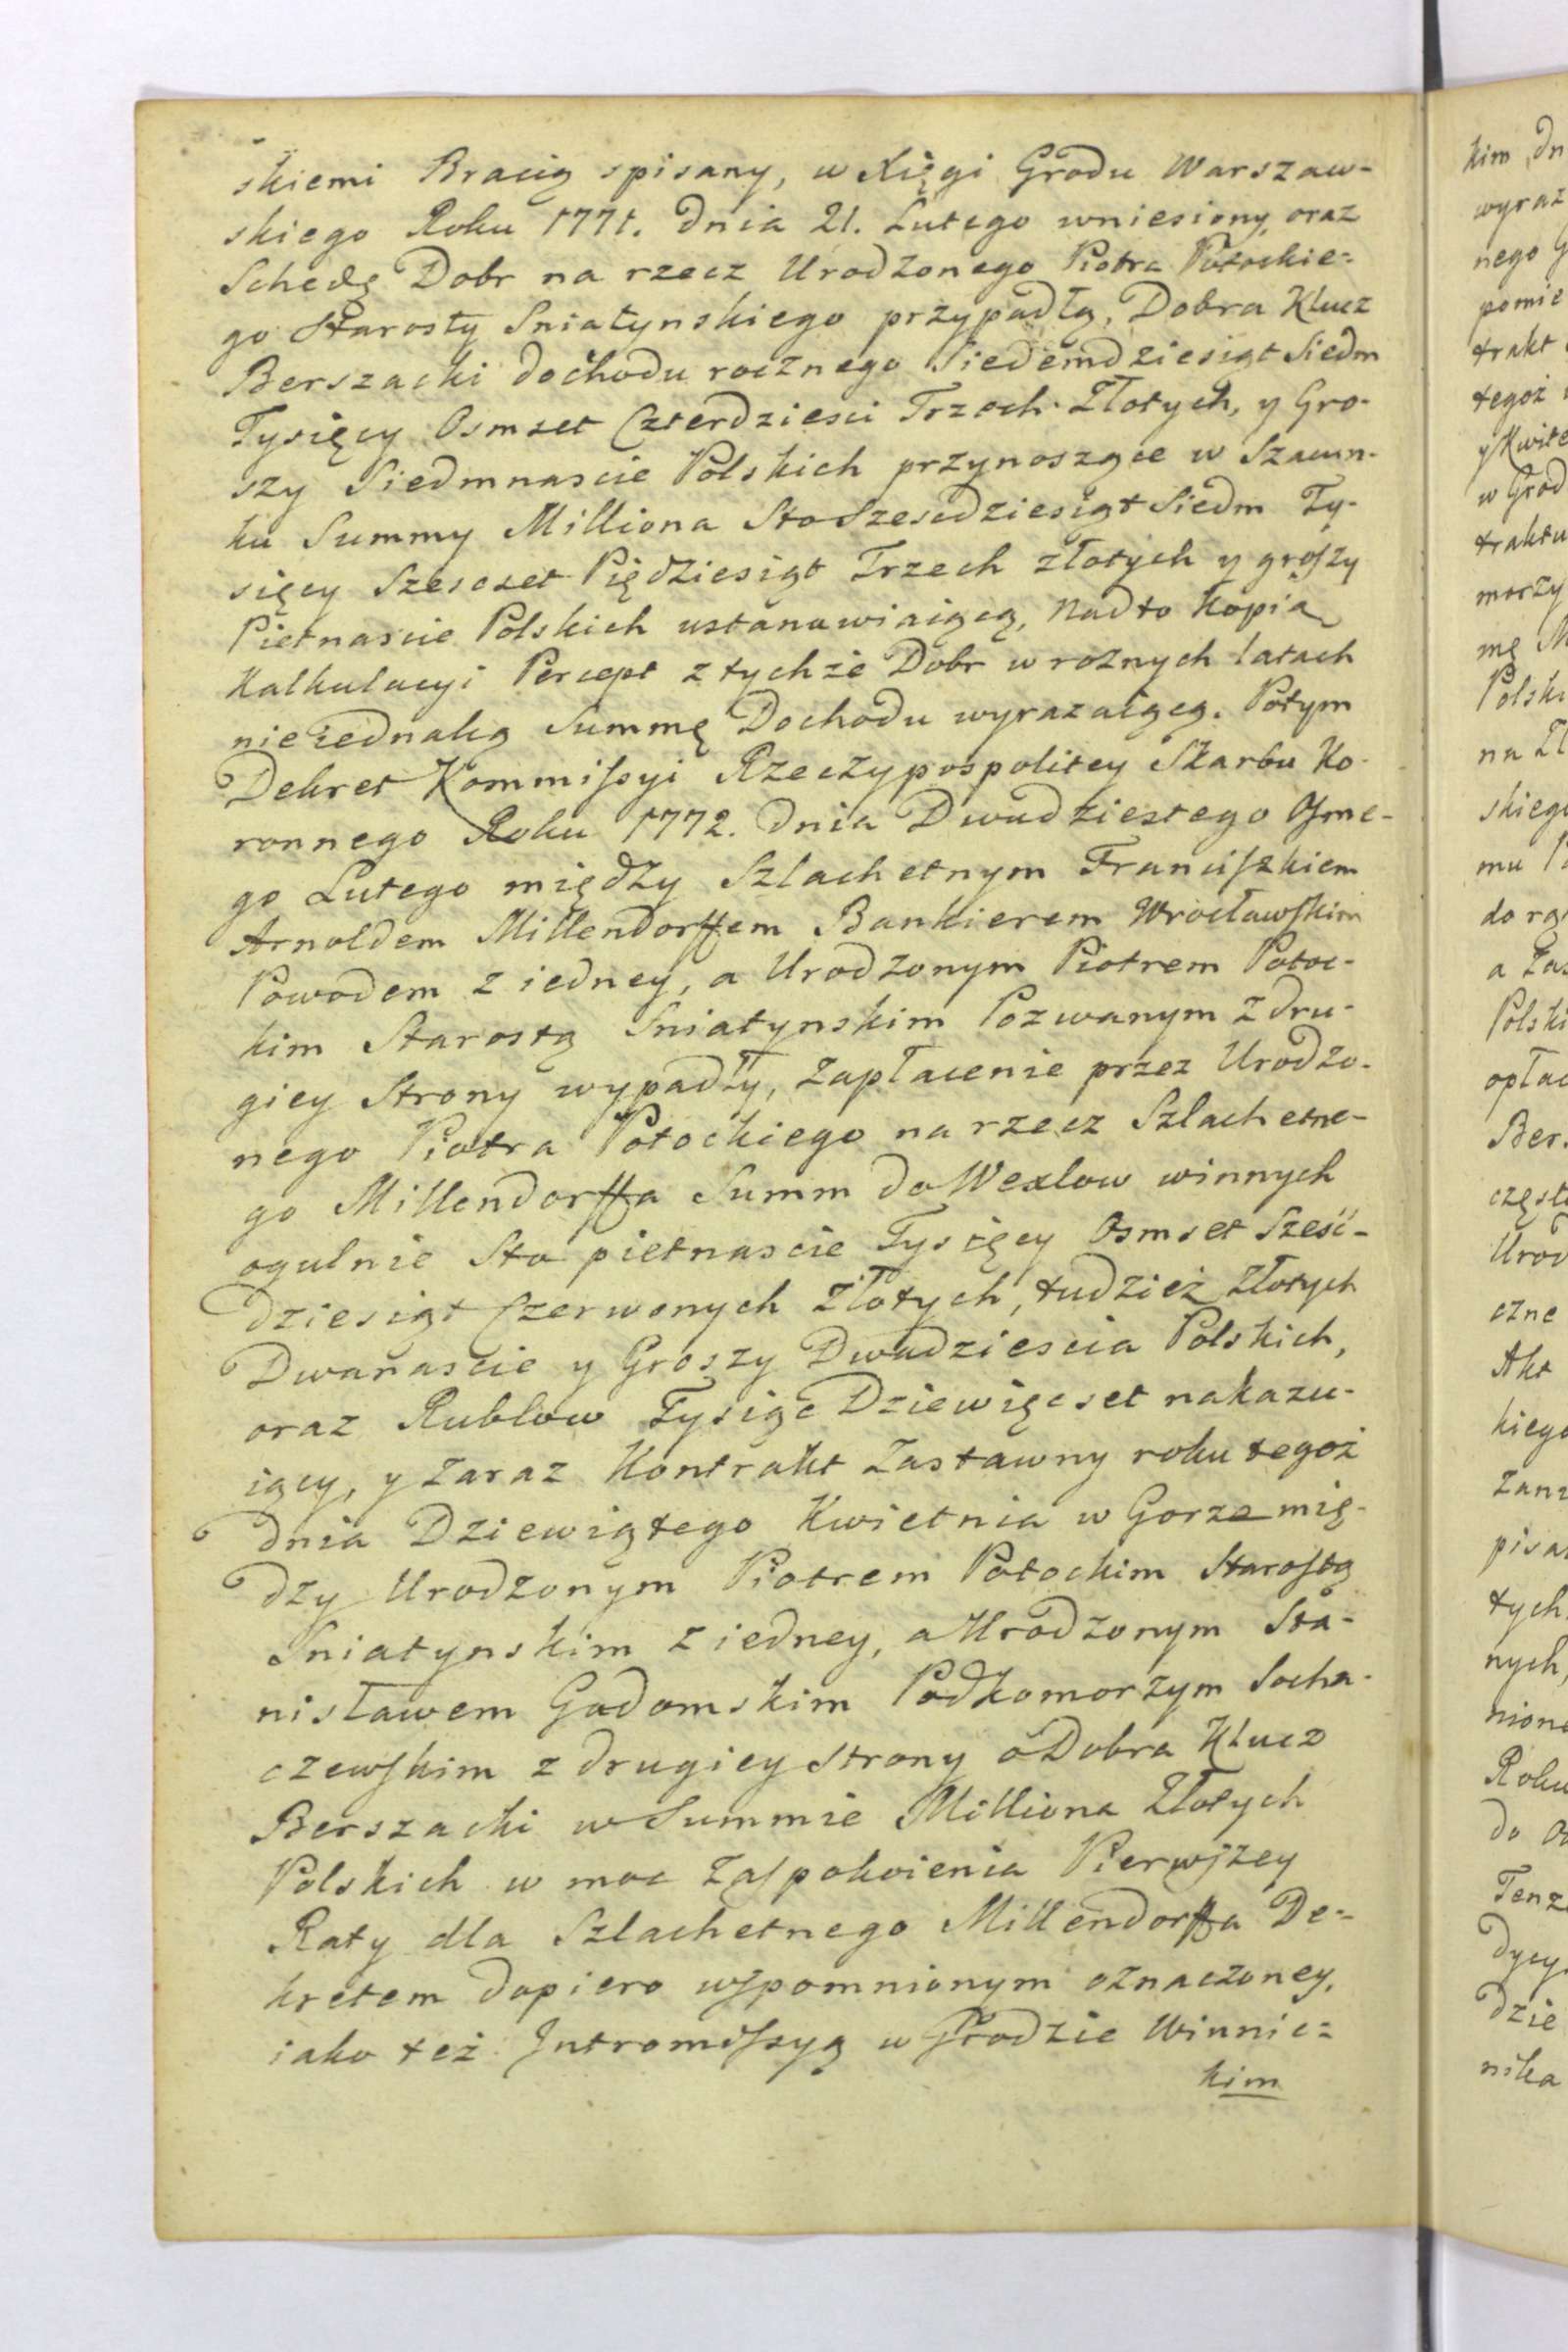 skiemi Bracią spisany, w Xięgi Grodu Warszaw-
skiego Roku 1771. dnia 21. Lutego wniesiony, oraz
Schedę Dobr na rzecz Urodzonego Piotra Potockie=
go Starosty Sniatynskiego przypadłą, Dobra Klucz
Berszacki dochodu rocznego Siedemdziesiąt Siedm
Tysięcy Osmset Czterdziesci Trzech Złotych, y Gro-
szy Siedmnascie Polskich przynoszące w Szacun-
ku Summy Milliona Sto Szescdziesiąt Siedm Ty-
sięcy Szescset Pięcdziesiąt Trzech złotych y groszy
Pietnascie Polskich ustanawiaiącą, nadto Kopia
Kalkulacyi Percept z tychże Dobr w roznych latach
nieiednaką Summę Dochodu wyrazaiącą. Potym
Dekret Kommissyi Rzeczypospolitey Skarbu Ko-
ronnego Roku 1772. dnia Dwudziestego Osme-
go Lutego między Szlachetnym Franciszkiem
Arnoldem Millendorffem Bankierem Wrocławskim
Powodem z iedney, a Urodzonym Piotrem Potoc-
kim Starostą Sniatynskim Pozwanym z dru-
giey Strony wypadły, Zapłacenie przez Urodzo-
nego Piotra Potockiego na rzecz Szlachetne-
go Millendorffa Summ do Wexlow winnych
ogulnie Sto pietnascie Tysięcy Osmset Sześć-
dziesiąt Czerwonych Złotych, tudzież Złotych
Dwanascie y Groszy Dwudziescia Polskich,
oraz Rublow Tysiąc Dziewięcset nakazu-
iący, y Zaraz Kontrakt Zastawny roku tegoż
dnia Dziewiątego Kwietnia w Gorze mię-
dzy Urodzonym Piotrem Potockim Starostą
Sniatynskim z iedney, a Urodzonym Sta-
nisławem Gadomskim Podkomorzym Socha-
czewskim z drugiey Strony o Dobra Klucz
Berszacki w Summie Milliona Złotych
Polskich w moc Zaspokoienia Pierwszey
Raty dla Szlachetnego Millendorffa De=
kretem dopiero wspomnionym oznaczoney,
iako też Intromissyą w Grodzie Winnic=
kim